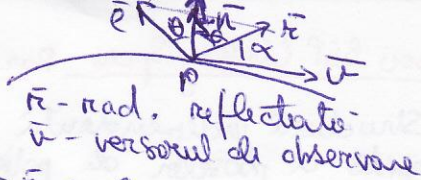 ē θ n̄ θ r̄
α
v̄
P
r̄ - rad. reflectată
v̄ - versorul de observare